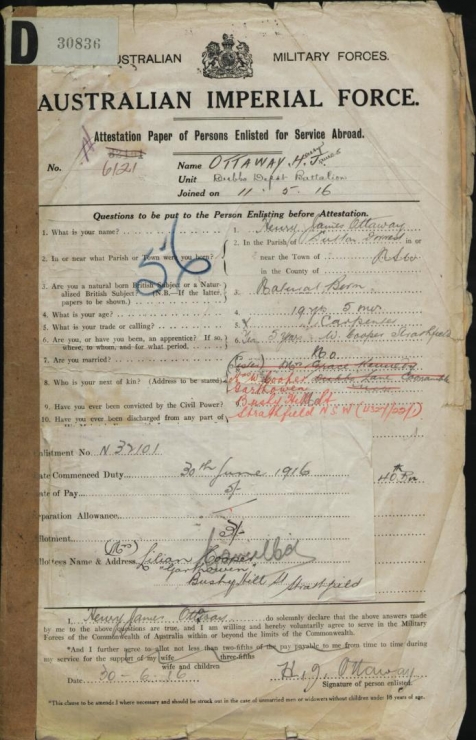 D 30836
AUSTRALIAN MILITARY FORCES.
AUSTRALIAN IMPERIAL FORCE.
Attestation Paper of Persons Enlisted for Service Abroad.
No. 6121
Name OTTAWAY, Henry James
Unit Depot Battalion
Joined on 11-5-16
Questions to be put to the Person Enlisting before Attestation.
56
1. What is your name? 1. Henry James Ottaway
2. In or near what Parish or Town were you born? 2. In the Parish of in or
near the Town of
in the County of NSW
3. Are you a natural born British Subject or a Natur-
alized British Subject? (N.B.—If the latter, 3. Natural Born
papers to be shown.)
4. What is your age? 4. 19 yrs 5 mos
5. What is your trade or calling? 5. Carpenter
6. Are you, or have you been, an apprentice? If so 6. Yes 5 years W. Cooper Strathfield
where, to whom, and for what period.
7. Are you married? No
8. Who is your next of kin? (Address to be stated) Cooper
9. Have you ever been convicted by the Civil Power? Bushy Hill St
10. Have you ever been discharged from any part of Strathfield NSW
nlistment No. N 37101
ate Commenced Duty 30th June 1916
ate of Pay 5/-
eparation Allowance
llotment 5/-
llottees Name & Address (Mrs) Lilian Cooper
Bushy Hill St Strathfield
I, Henry James Ottaway do solemnly declare that the above answers made
by me to the above questions are true, and I am willing and hereby voluntarily agree to serve in the Military
Forces of the Commonwealth of Australia within or beyond the limits of the Commonwealth.
*And I further agree to allot not less than two-fifths of the pay payable to me from time to time during
three-fifths
my service for the support of my wife
wife and children
Date 30-6-16 H. J. Ottaway
Signature of person enlisted.
*This clause to be amended where necessary and should be struck out in the case of unmarried men or widowers without children under 18 years of age.